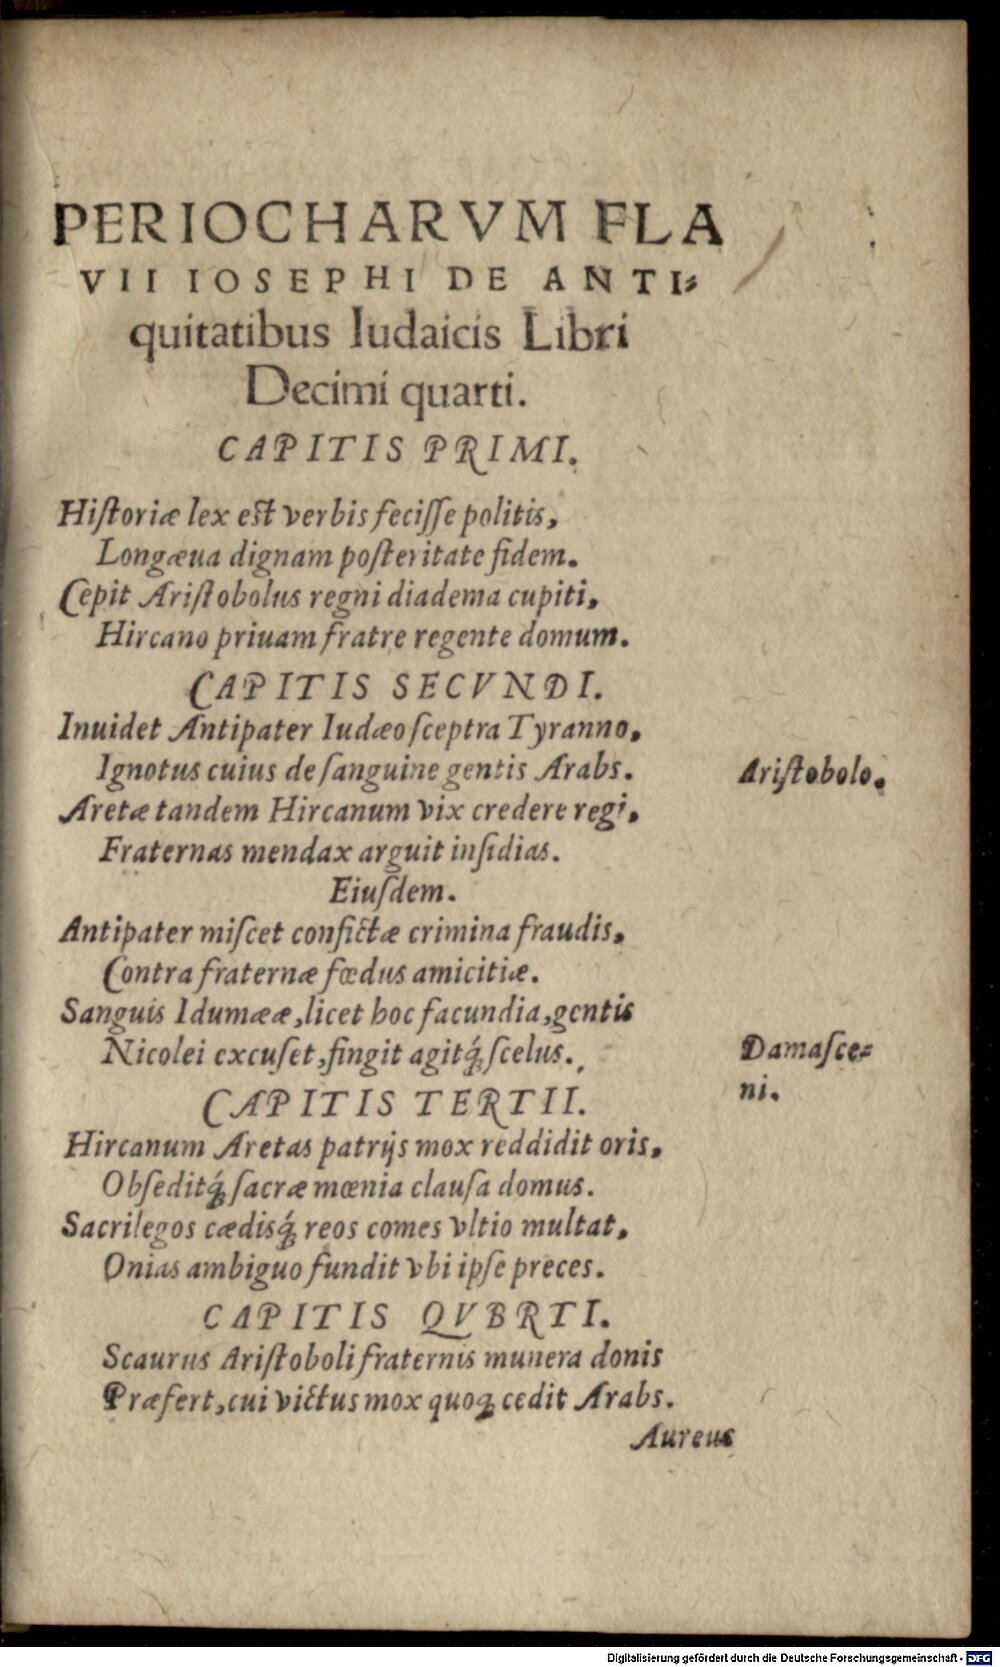 PERIOCHARVM FLA
VII IOSEPHI DE ANTI⸗
quitatibus Iudaicis Libri
Decimi quarti.
CAPITIS PRIMI.
Hiſtoriæ lex eſt verbis feciſſe politis,
Longæua dignam poſteritate fidem.
Cepit Ariſtobolus regni diadema cupiti,
Hircano priuam fratre regente domum.
CAPITIS SECVNDI.
Inuidet Antipater Iudæo ſceptra Tyranno,
Ignotus cuius de ſanguine gentis Arabs.
Ariſtobolo.
Aretæ tandem Hircanum vix credere regi,
Fraternas mendax arguit inſidias.
Eiuſdem.
Antipater miſcet confictæ crimina fraudis,
Contra fraternæ fœdus amicitiæ.
Sanguis Idumææ, licet hoc facundia, gentis
Nicolei excuſet, fingit agitq́ꝫ ſcelus.
Damaſce⸗
ni.
CAPITIS TERTII.
Hircanum Aretas patrijs mox reddidit oris,
Obſeditq́ꝫ ſacræ mœnia clauſa domus.
Sacrilegos cædisq́ꝫ reos comes vltio multat,
Onias ambiguo fundit vbi ipſe preces.
CAPITIS QVBRTI.
Scaurus Ariſtoboli fraternis munera donis
Præfert, cui victus mox quoqꝫ cedit Arabs.
Aureus
Digitalisierung gefördert durch die Deutsche Forschungsgemeinschaft - DFG